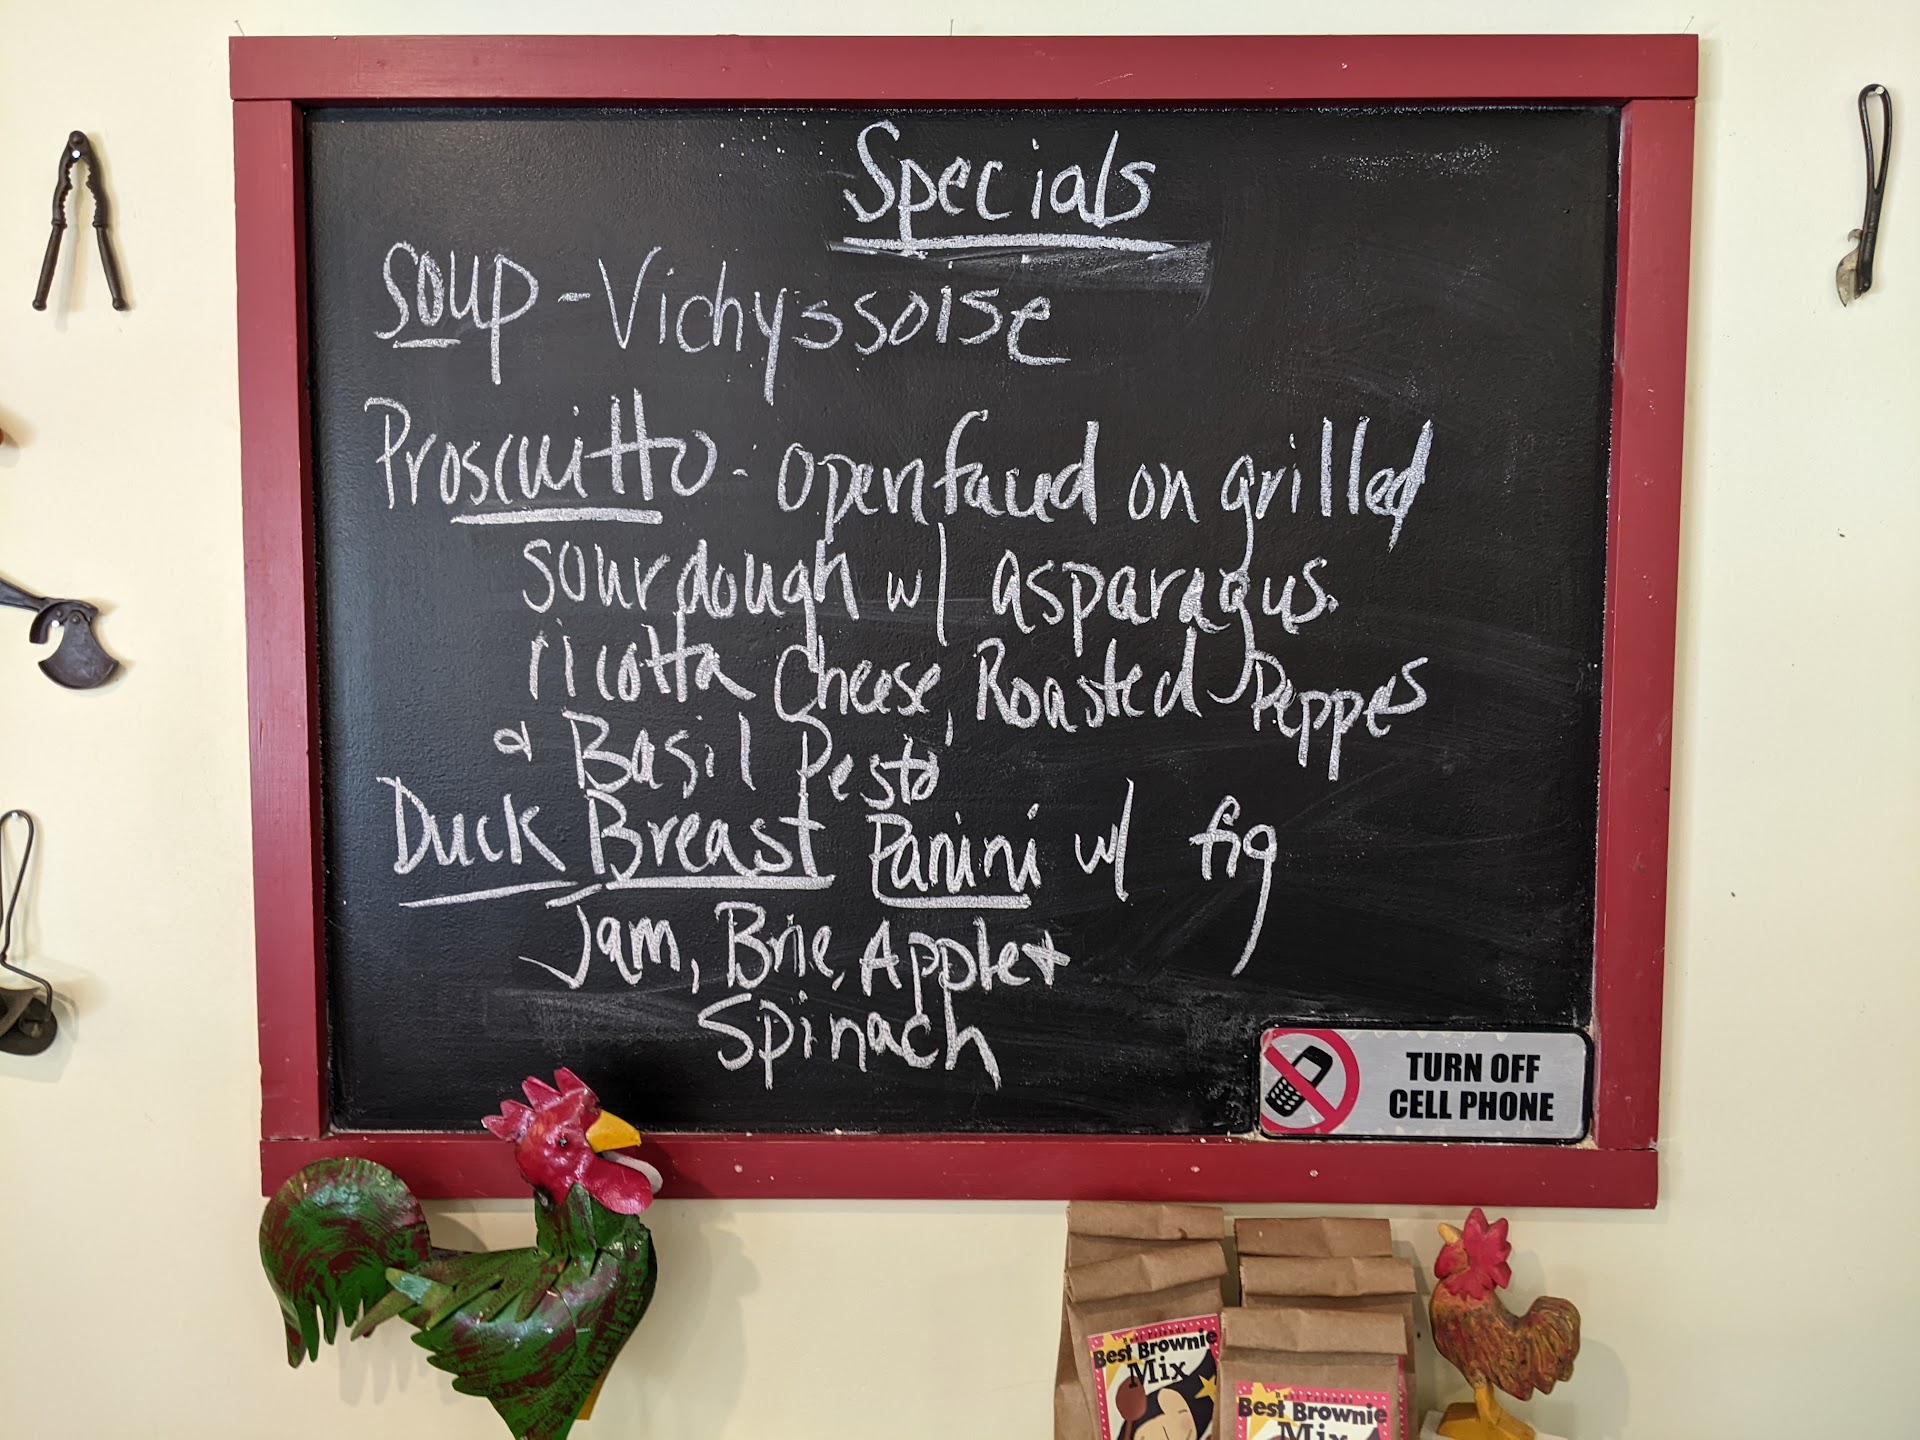 Specials
Soup - Vichyssoise
Proscuitto - openfaced on grilled
sourdough w/ asparagus.
ricotta Cheese, Roasted Peppes
& Basil Pesto
Duck Breast Panini w/ fig
Jam, Brie, Apple &
Spinach
TURN OFF
CELL PHONE
Best Friends
Best Brownie
Mix
Best Friends
Best Brownie
Mix